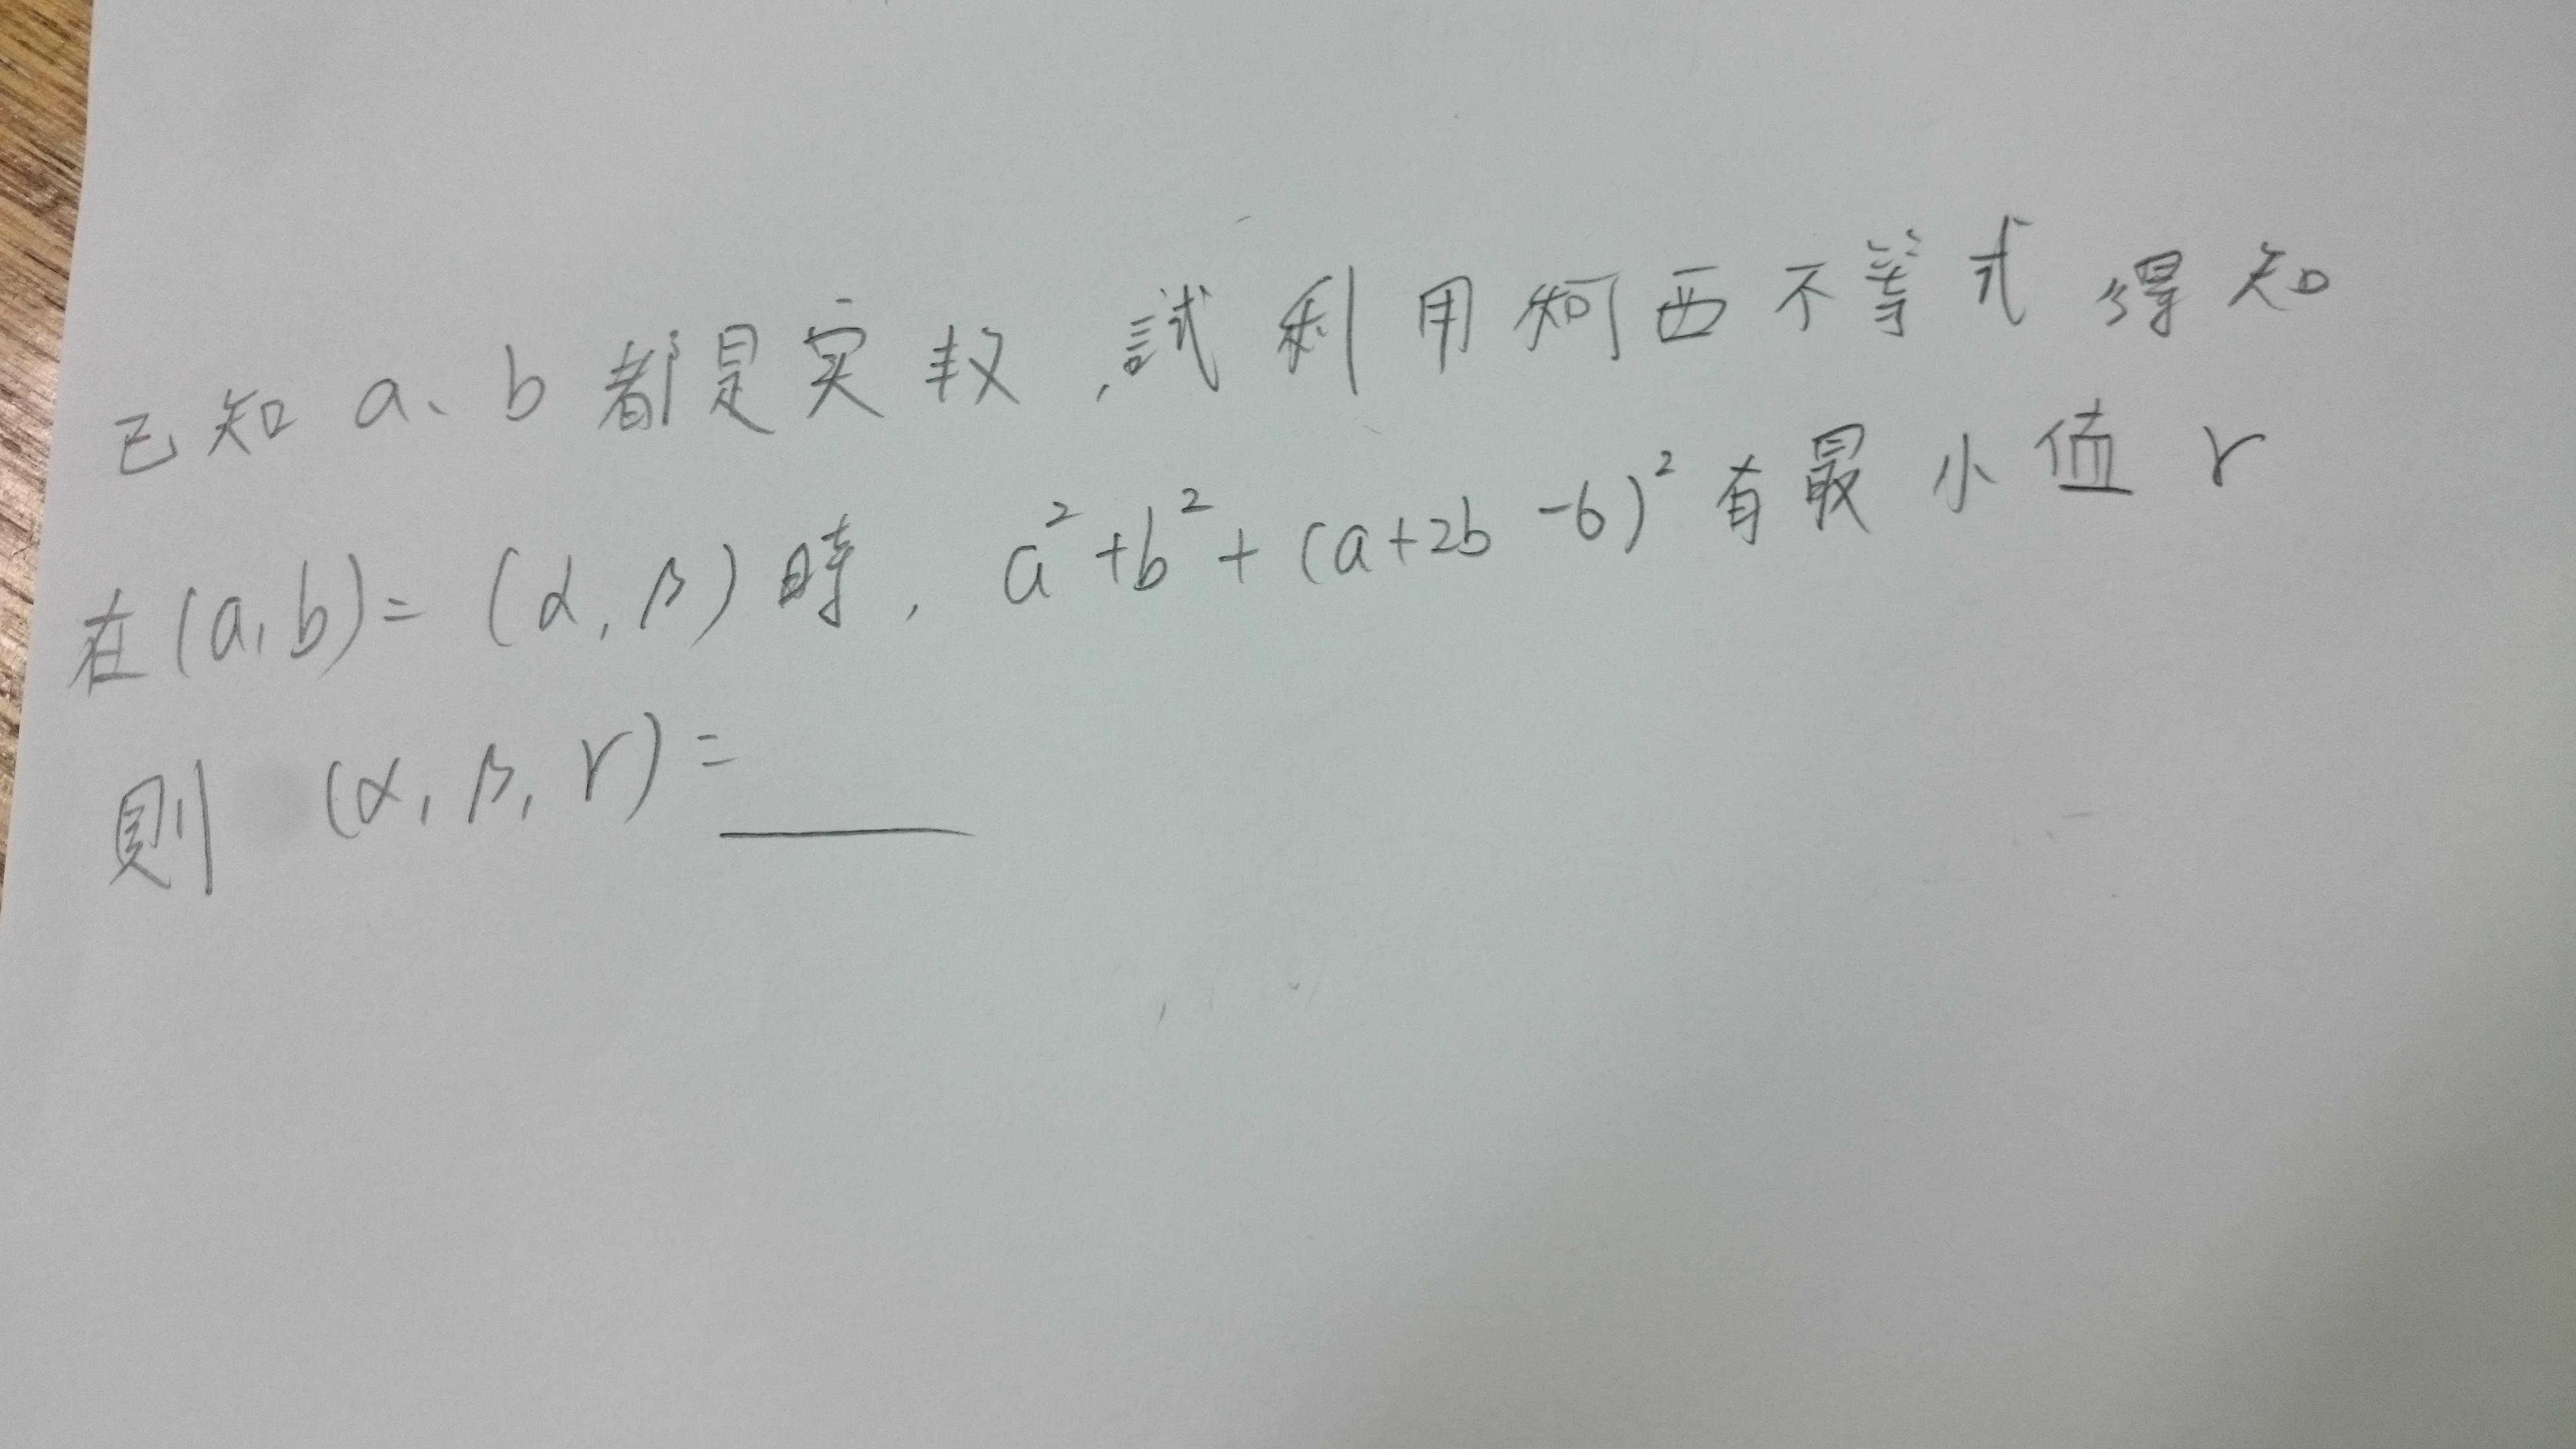 已知 a、b 都是実数,試利用柯西不等式得知
在(a,b)=(α,β)時,a²+b²+(a+2b-6)²有最小值r
則 (α,β,r)=____